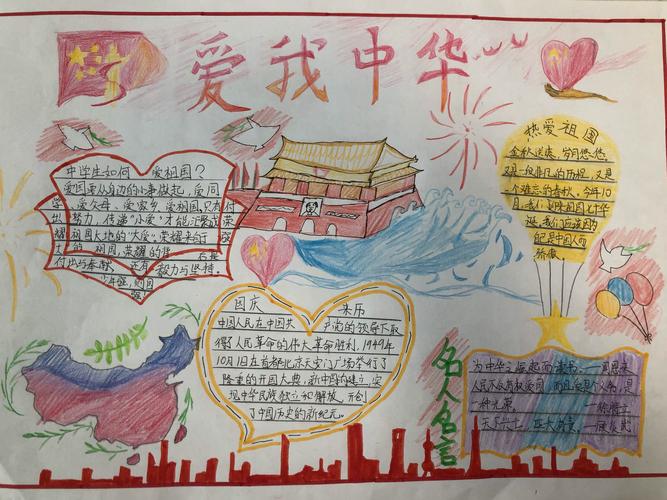 爱我中华
中学生如何 爱祖国？
爱国要从身边的小事做起，爱同
学、爱父母、爱家乡、爱祖国，只有付
出努力，传递"小爱"才能汇聚成荣
耀祖国大地的"大爱"，荣耀来自于强
的祖国，荣耀的
付出与奉献 毅力与坚持。
少年强，则国
强
热爱祖国
金秋送爽，岁月悠悠，
又是一段非凡的历程，又是
一个难忘的春秋，今年10
月，我们迎来祖国七十华
诞，我们应该因为
自己是中国人而
骄傲。
国庆 来历
中国人民在中国共产党的领导下取
得了人民革命的伟大革命胜利，1949年
10月1日在首都北京天安门广场举行了
隆重的开国大典，新中国的建立，实
现中华民族独立和解放，开创
了中国历史的新纪元。
名人名言
为中华之崛起而读书。——周恩来
人民不仅有权爱国，而且爱国是个义务，是
一种光荣。